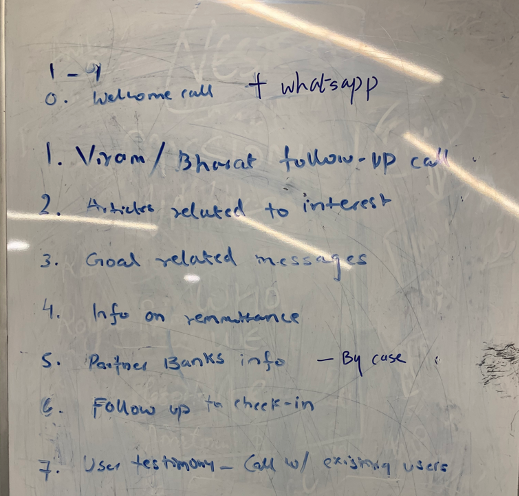 1 - 9
0. Welcome call + whatsapp
1. Viram / Bharat follow-up call
2. Articles related to interest
3. Goal related messages
4. Info on remmittance
5. Partner Banks info - By case
6. Follow up to check-in
7. User testimony - Call w/ existing users